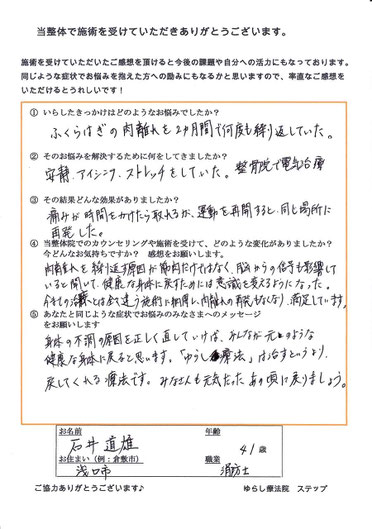 当整体で施術を受けていただきありがとうございます。
施術を受けていただいたご感想を頂けると今後の課題や自分への活力にもなっております。
同じような症状でお悩みを抱えた方への励みにもなるかと思いますので、率直なご感想を
いただけるとうれしいです！
① いらしたきっかけはどのようなお悩みでしたか？
ふくらはぎの肉離れを2ヶ月間で何度も繰り返していた。
② そのお悩みを解決するために何をしてきましたか？
安静、アイシング、ストレッチをしていた。整骨院で電気治療
③ その結果どんな効果がありましたか？
痛みが時間をかけたら取れるが、運動を再開すると、同じ場所に
再発した。
④ 当整体院でのカウンセリングや施術を受けて、どのような変化がありましたか？
今どんなお気持ちですか？ 感想をお願いします。
肉離れを繰り返す原因が筋肉だけではなく、脳からの信号も影響して
いると聞いて、健康な身体に戻すためには意識を変えるようになった。
今までの治療とは全く違う施術に納得し、肉離れの再発もなくなり、満足しています。
⑤ あなたと同じような症状でお悩みのみなさまへのメッセージ
をお願いします
身体の不調の原因を正しく直していけば、みんなが元々のような
健康な身体に戻ると思います。「ゆらし療法」は治すというより、
戻してくれる療法です。みなさんも元気だったあの頃に戻りましょう。
お名前 年齢
石井 道雄 41歳
お住まい（例：倉敷市） 職業
浅口市 消防士
ご協力ありがとうございます♪ ゆらし療法院 ステップ